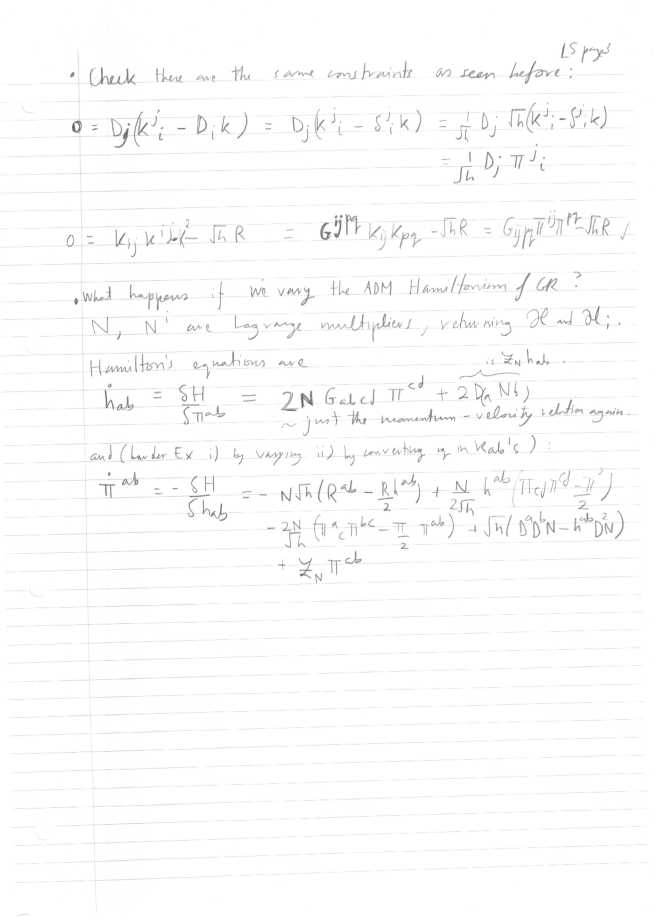 L5 page3
• Check there are the same constraints as seen before:
0 = Dj(K^j_i - D_i K) = Dj(K^j_i - δ^j_i K) = 1/√h Dj √h(K^j_i - δ^j_i K)
= 1/√h Dj π^j_i
0 = K_ij K^ij - K² - √h R = G^ijpq K_ij K_pq - √h R = G_ijpq π^ij π^pq - √h R ✓
• What happens if we vary the ADM Hamiltonian of GR ?
N, N^i are Lagrange multipliers, returning ℋ and ℋ_i.
Hamilton's equations are
is ℒ_N h_ab.
ḣ_ab = δH/δπ^ab = 2N G_abcd π^cd + 2D_(a N_b)
~ just the momentum-velocity relation again.
and (harder Ex i) by varying ii) by converting in K_ab's ) :
π̇^ab = - δH/δh_ab = - N√h (R^ab - R/2 h^ab) + N/2√h h^ab (π_cd π^cd - π²/2)
- 2N/√h (π^a_c π^bc - π/2 π^ab) + √h (D^a D^b N - h^ab D² N)
+ ℒ_N π^ab